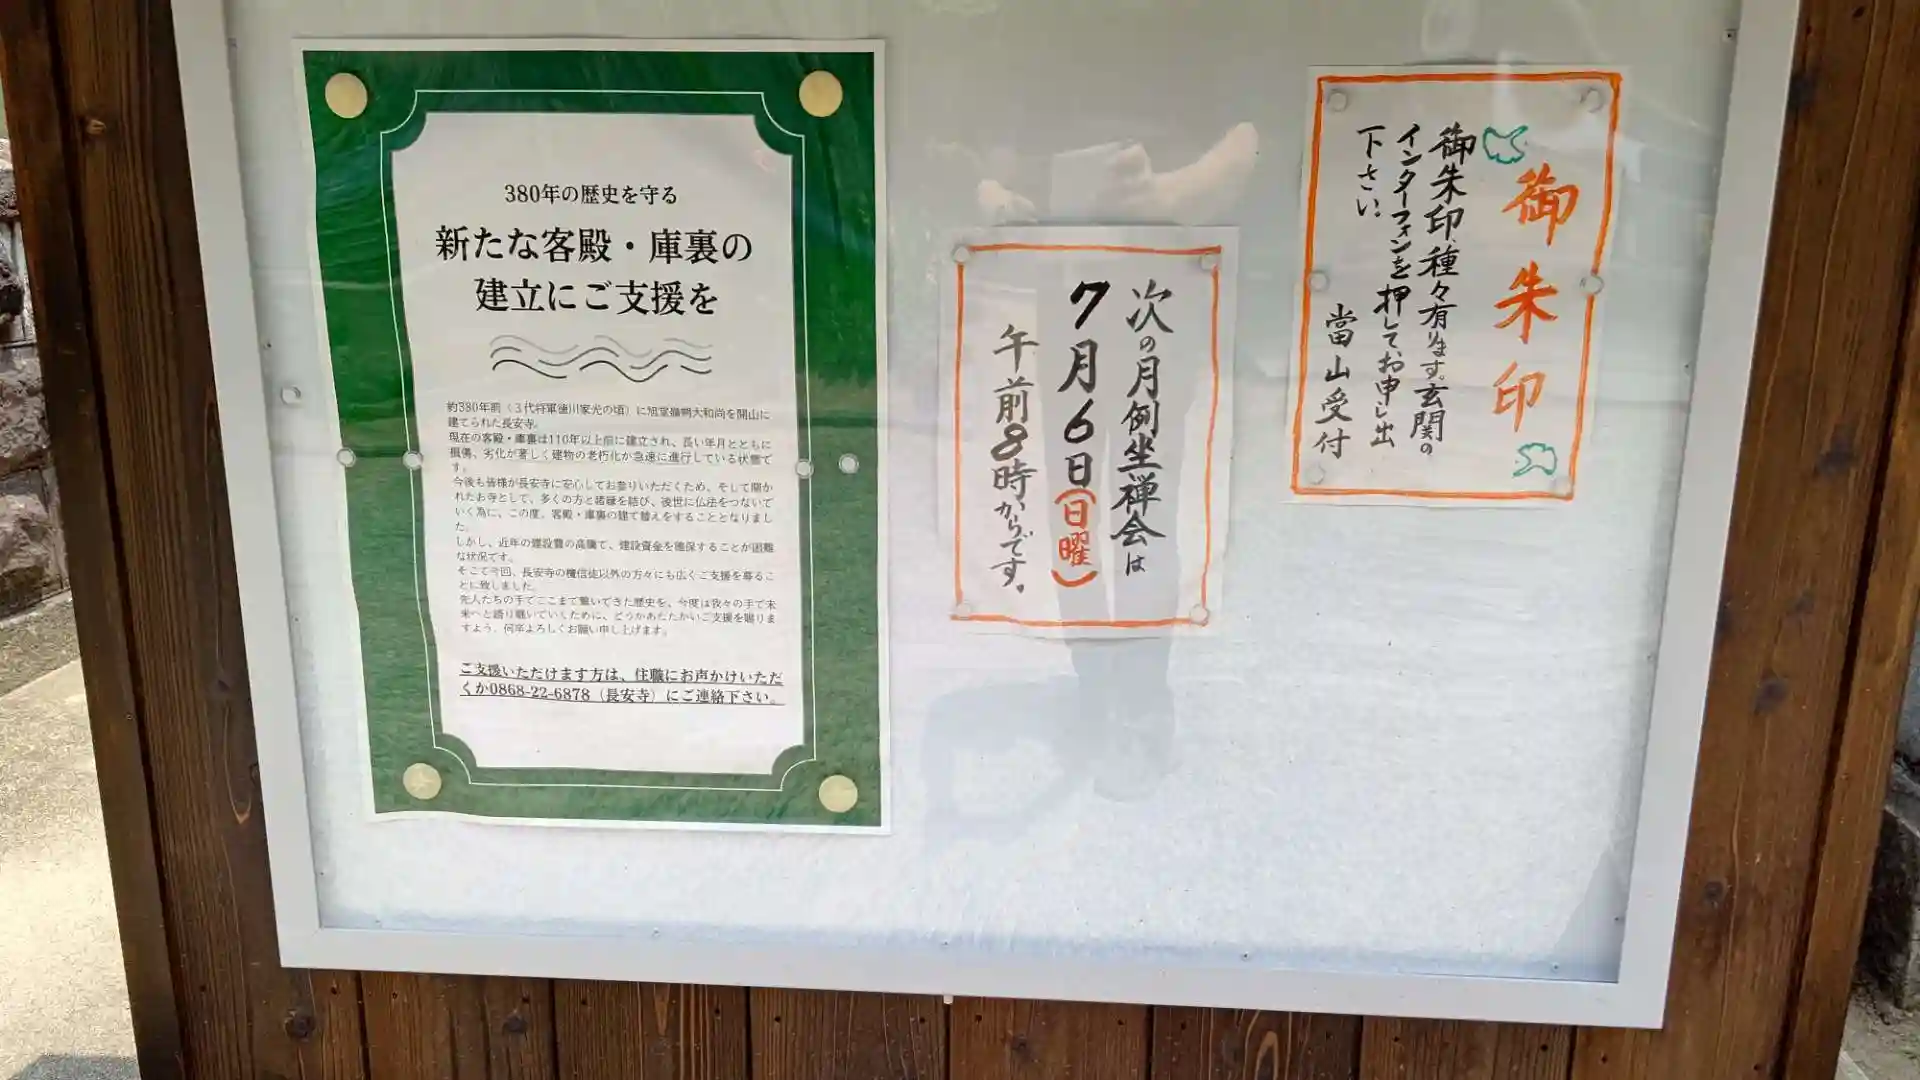 380年の歴史を守る
新たな客殿・庫裏の
建立にご支援を
約380年前（3代将軍徳川家光の頃）に旭堂
大和尚を開山に
建てられた長安寺。
現在の客殿・庫裏は110年以上前に建立され、長い年月とともに
損傷、劣化が著しく建物の老朽化が急速に進行している状態で
す。
今後も皆様が長安寺に安心してお参りいただくため、そして開か
れたお寺として、多くの方と諸縁を結び、後世に仏法をつないで
いく為に、この度、客殿・庫裏の建て替えをすることとなりまし
た。
しかし、近年の建設費の高騰で、建設資金を確保することが困難
な状況です。
そこで今回、長安寺の檀信徒以外の方々にも広くご支援を募るこ
とに致しました。
先人たちの手でここまで繋いできた歴史を、今度は我々の手で未
来へと語り継いでいくために、どうかあたたかいご支援を賜りま
すよう、何卒よろしくお願い申し上げます。
ご支援いただけます方は、住職にお声かけいただ
くか0868-22-6878（長安寺）にご連絡下さい。
次の月例坐禅会は
7月6日（日曜）
午前8時からです。
御朱印
御朱印、種々有ります。玄関の
インターフォンを押してお申し出
下さい。
當山受付